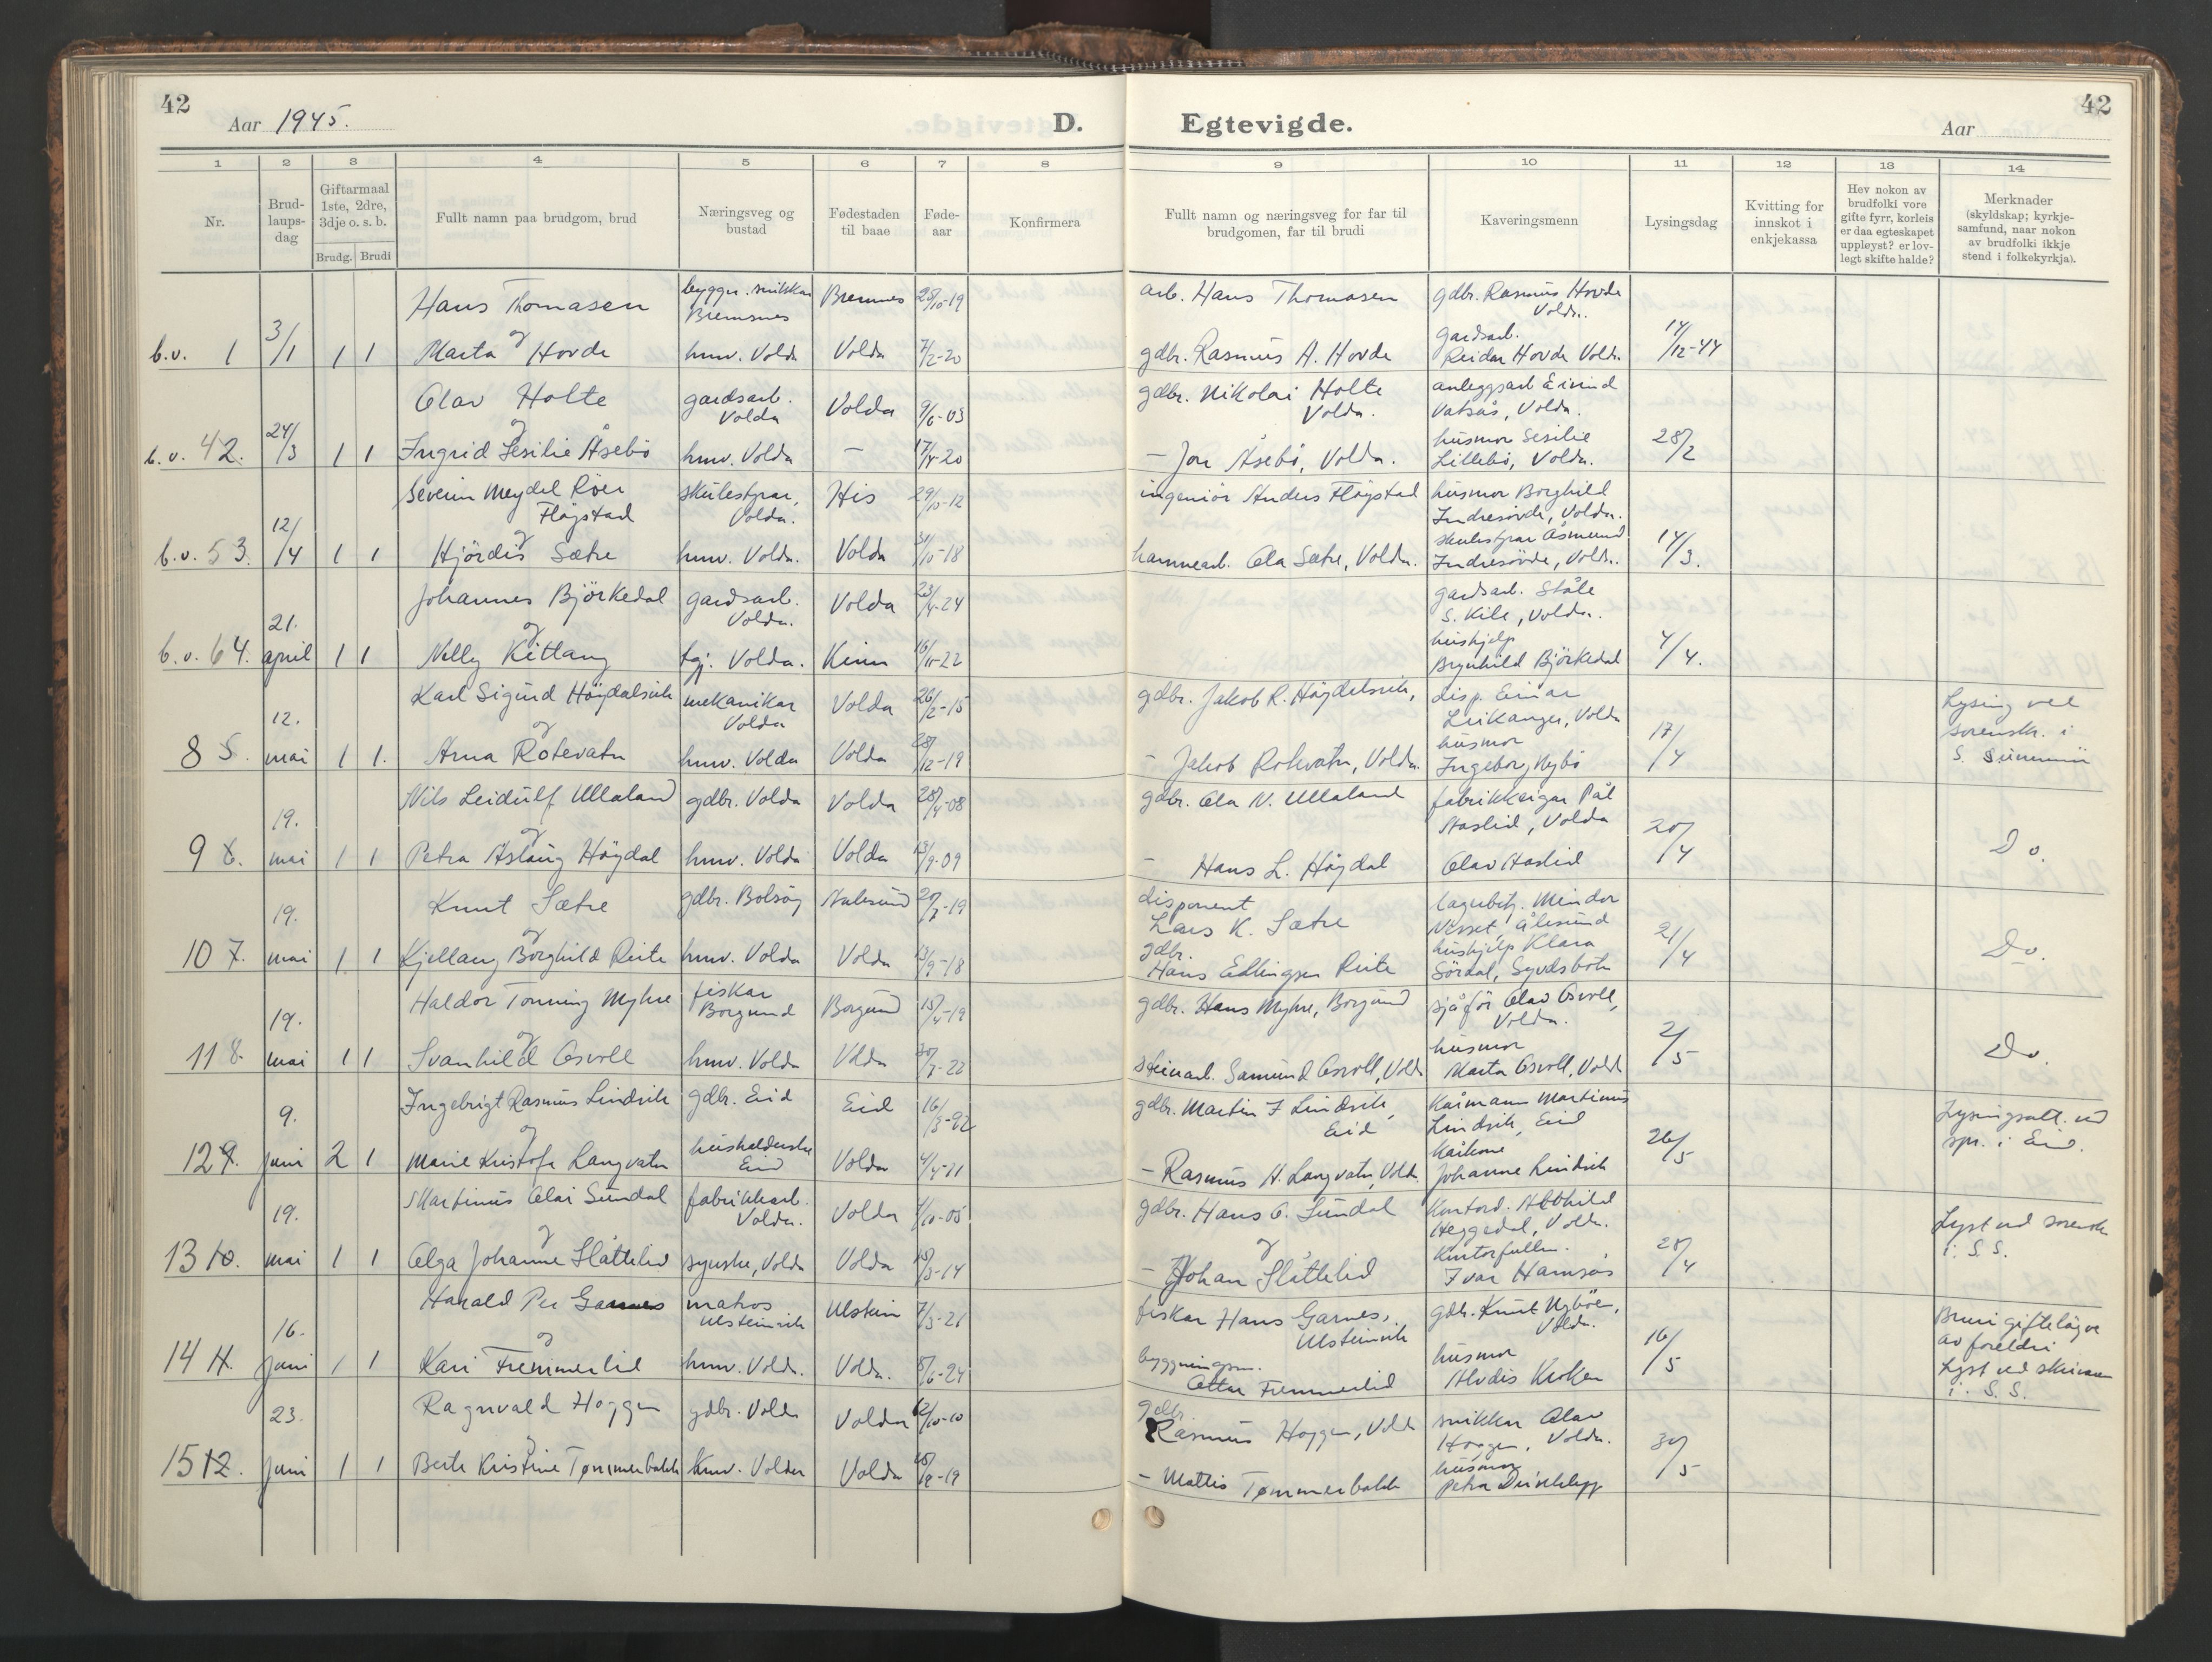 42
Aar 1945.
D.
1 2 3 4 5 6 7 8
Nr.
Brud-
laups-
dag
Giftarmaal
1ste, 2dre,
3dje o. s. b.
Brudg. Brudi
Fullt namn paa brudgom, brud
Næringsveg og
bustad
Fødestaden
til baae
Føde-
aar
Konfirmera
Hans Thomasen Bremsnes 28/10-19
og
b.v. 1 3/1 1 1 Marta Hovde hmv. Volda Volda 7/2-20
Olav Holte gardsarb. Volda Volda 9/6-03
og
b.v. 42. 24/3 1 1 Ingrid Sesilie Åsebö hmv. Volda — 17/8-20
Severin Meydel Röer Flögstad skulestyrar, Volda. His 29/10-12
og
b.v. 53. 12/4 1 1 Hjördis Sætre hmv. Volda. Volda 31/10-18
Johannes Björkedal gardsarb. Volda. Volda 23/4-24
og
b.v. 64. 21. april 1 1 Nelly Kitlang Volda. Kinn 16/11-22
Karl Sigurd Höydalsvik mekanikar Volda Volda 26/2-15
og
8 5. 12. mai 1 1. Arna Rotevatn hmv. Volda Volda 28/12-19
Nils Leidulf Ullaland gdbr. Volda Volda 28/4-08
og
9 6. 19. mai 1 1 Petra Aslaug Högdal hmv. Volda Volda 13/9-09
Knut Sætre gdbr. Bolsöy Aalesund 20/7-19
og
10 7. 19. mai 1 1 Kjellaug Borghild Reite hmv. Volda Volda 13/9-18
Haldor Tonning Myhre fiskar Borgund Borgund 15/4-19
og
11 8. 19. mai 1 1 Svanhild Osvoll hmv. Volda Volda
Ingebrigt Rasmus Lindvik gdbr. Eid Eid 16/3-92
og
12 9. 9. juni 2 1 Marie Kristofa Langvatn Eid Volda 4/4-11
Martinus Olai Sundal fabrikkarb. Volda. Volda 1/10-05
og
13 10. 19. mai 1 1 Olga Johanne Slåttelid syerske, Volda Volda 18/3-14
Harald Per Garnes matros Ulsteinvik Ulstein 7/3-21
og
14 11. 16. juni 1 1 Kari Fremmerlid hmv. Volda. Volda. 8/6-24
Ragnvald Hoggen gdbr. Volda Volda 12/10-10
og
15 12. 23. juni 1 1 Berte Kristine Tømmerbakk hmv. Volda Volda
42
Egtevigde.
Aar
9 10 11 12 13 14
Fullt namn og næringsveg for far til
brudgomen, far til brudi
Kaveringsmenn
Lysingsdag
Kvitting for
innskot i
enkjekassa
Hev nokon av
brudfolki vore
gifte fyrr, korleis
er daa egteskapet
uppløyst? er lov-
legt skifte halde?
Merknader
(skyldskap; kyrkje-
samfund, naar nokon
av brudfolki ikkje
stend i folkekyrkja).
arb. Hans Thomasen gdbr. Rasmus Hovde Volda.
gdbr. Rasmus A. Hovde gardsarb. Reidar Hovde Volda. 14/12-44
gdbr. Nikolai Holte Volda. anleggsarb. Eivind Vatsås, Volda.
— Jon Åsebö, Volda. husmor Sesilie Lillebö, Volda. 28/2
ingeniör Anders Flögstad husmor Borghild Indresövde, Volda.
hamnearb. Ola Sætre, Volda. skulestyrar Åsmund Indresövde, Volda. 14/3.
gardsarb. Ståle S. Kile, Volda.
hushjelp Brynhild Björkedal 4/4.
gdbr. Jakob R. Höydalsvik, disp. Einar Leikanger, Volda
— Jakob Rotevatn, Volda. husmor Ingeborg Nybö 17/4
Lysing ved
sorenskr. i
S. Sunnmör
gdbr. Ola N. Ullaland fabrikkeigar Pål Aaslid, Volda
— Hans L. Högdal Olav Aaslid 20/4 Do.
disponent Lars K. Sætre lagerbetj. Mindor Ålesund
gdbr. Hans Edlingsen Reite hushjelp Klara Sördal, Syvdsbotn 21/4 Do.
gdbr. Hans Myhre, Borgund sjåför Olav Osvoll, Volda.
steinarb. Samund Osvoll, Volda husmor Marta Osvoll, Volda 2/5 Do.
gdbr. Martin I Lindvik, Eid Kårmann Martinus Lindvik, Eid
— Rasmus H. Langvatn, Volda. Kårkone Johanne Lindvik 26/5
Lysingsatt. ved
spr. i Eid.
gdbr. Hans O. Sundal Kontord. Heggedal, Volda.
og
— Johan Slåttelid Kontorfullm. Ivar Hamsås 28/4
Lyst ved sorenskr.
i S. S.
fiskar Hans Garnes, Ulsteinvik gdbr. Knut Nyböen, Volda.
byggningsm. Ottar Fremmerlid husmor Alvdis Kroken 16/5
Bruri giftelöyve
av foreldri
Lyst ved skrivaren
i S. S.
gdbr. Rasmus Hoggen, Volda snikkar Olav Hoggen, Volda.
— Mattis Tømmerbakk husmor Petra 30/5